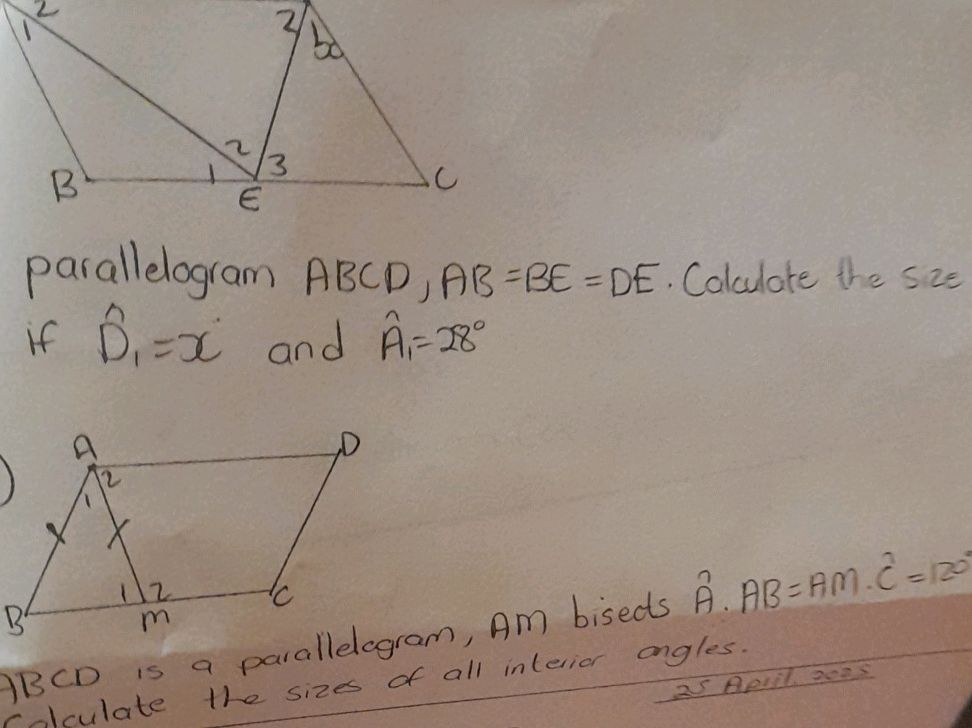 2
1
2
x
2
1
3
B
E
C
parallelogram ABCD, AB=BE=DE. Calculate the size
if D̂₁=x and Â₁=28°
)
A
D
2
1
1
2
B
M
C
ABCD is a parallelogram, AM bisects Â. AB=AM. Ĉ=120°
Calculate the sizes of all interior angles.
25 April 2025